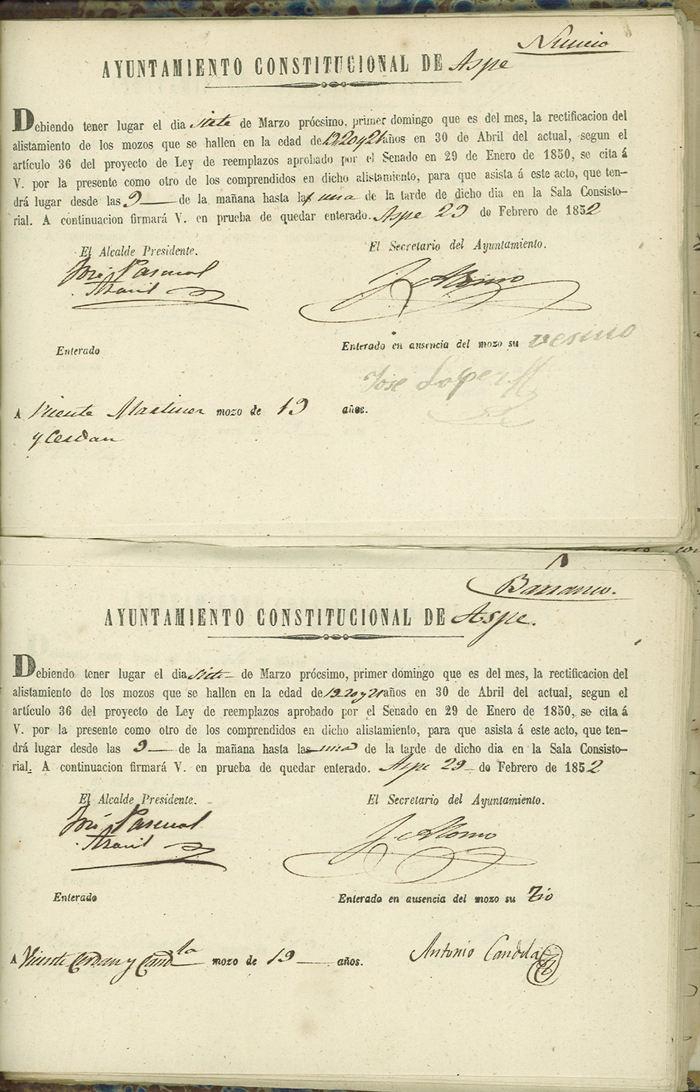 Nuncio
AYUNTAMIENTO CONSTITUCIONAL DE Aspe
Debiendo tener lugar el dia siete de Marzo prócsimo, primer domingo que es del mes, la rectificacion del
alistamiento de los mozos que se hallen en la edad de 19 20 y 21 años en 30 de Abril del actual, segun el
artículo 36 del proyecto de Ley de reemplazos aprobado por el Senado en 29 de Enero de 1850, se cita á
V. por la presente como otro de los comprendidos en dicho alistamiento, para que asista á este acto, que ten-
drá lugar desde las 9 de la mañana hasta la una de la tarde de dicho dia en la Sala Consisto-
rial. A continuacion firmará V. en prueba de quedar enterado. Aspe 29 de Febrero de 1852
El Alcalde Presidente. El Secretario del Ayuntamiento.
José Pascual
Enterado Enterado en ausencia del mozo su vesino
José Lopez
A Vicente Martinez mozo de 19 años.
y Cerdan
Barranco.
AYUNTAMIENTO CONSTITUCIONAL DE Aspe.
Debiendo tener lugar el dia siete de Marzo prócsimo, primer domingo que es del mes, la rectificacion del
alistamiento de los mozos que se hallen en la edad de 19 20 y 21 años en 30 de Abril del actual, segun el
artículo 36 del proyecto de Ley de reemplazos aprobado por el Senado en 29 de Enero de 1850, se cita á
V. por la presente como otro de los comprendidos en dicho alistamiento, para que asista á este acto, que ten-
drá lugar desde las 9 de la mañana hasta la una de la tarde de dicho dia en la Sala Consisto-
rial. A continuacion firmará V. en prueba de quedar enterado. Aspe 29 de Febrero de 1852
El Alcalde Presidente. El Secretario del Ayuntamiento.
José Pascual
Enterado Enterado en ausencia del mozo su Tio
A Vicente Cerdan y Candla mozo de 19 años. Antonio Candela